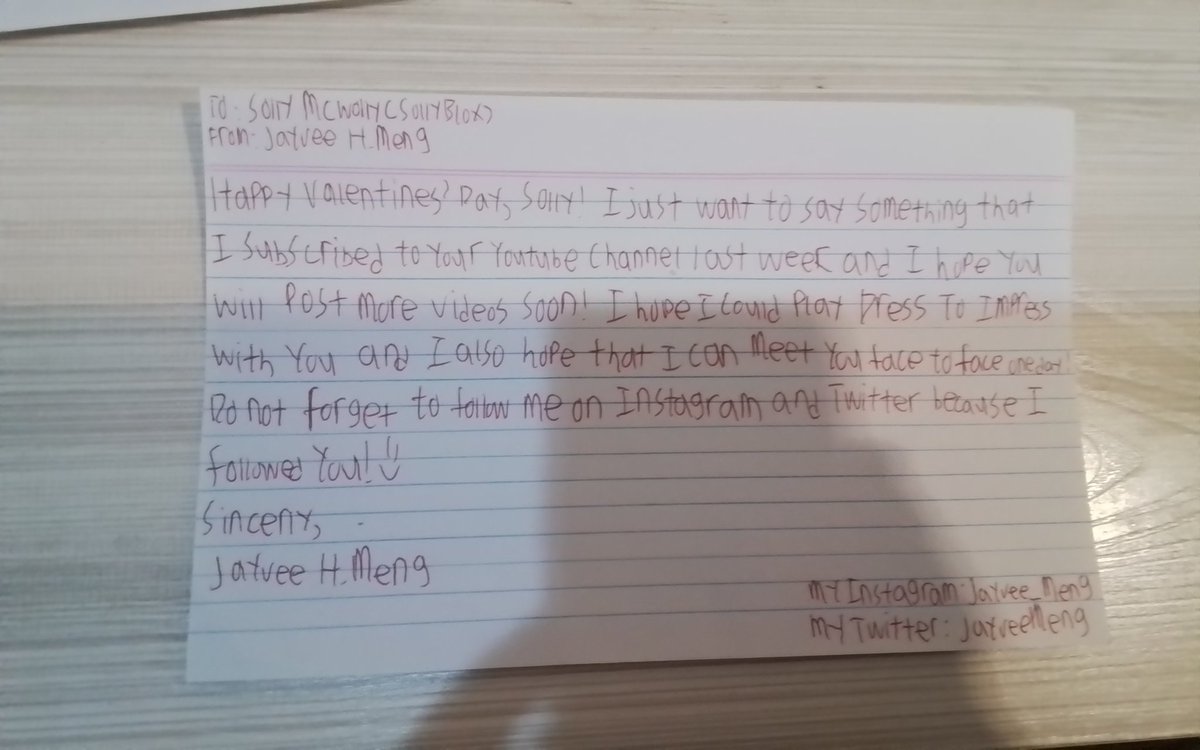 To: Sally McWally (SallyBlox)
From: Jayvee H. Meng
Happy Valentines' Day, Sally! I just want to say something that
I subscribed to your Youtube Channel last week and I hope You
will Post More videos soon! I hope I could Play Dress To Impress
with You and I also hope that I can Meet You face to face one day!
Do not forget to follow me on Instagram and Twitter because I
followed You! :)
Sincerly,
Jayvee H. Meng
My Instagram: Jayvee_Meng
My Twitter: JayveeMeng